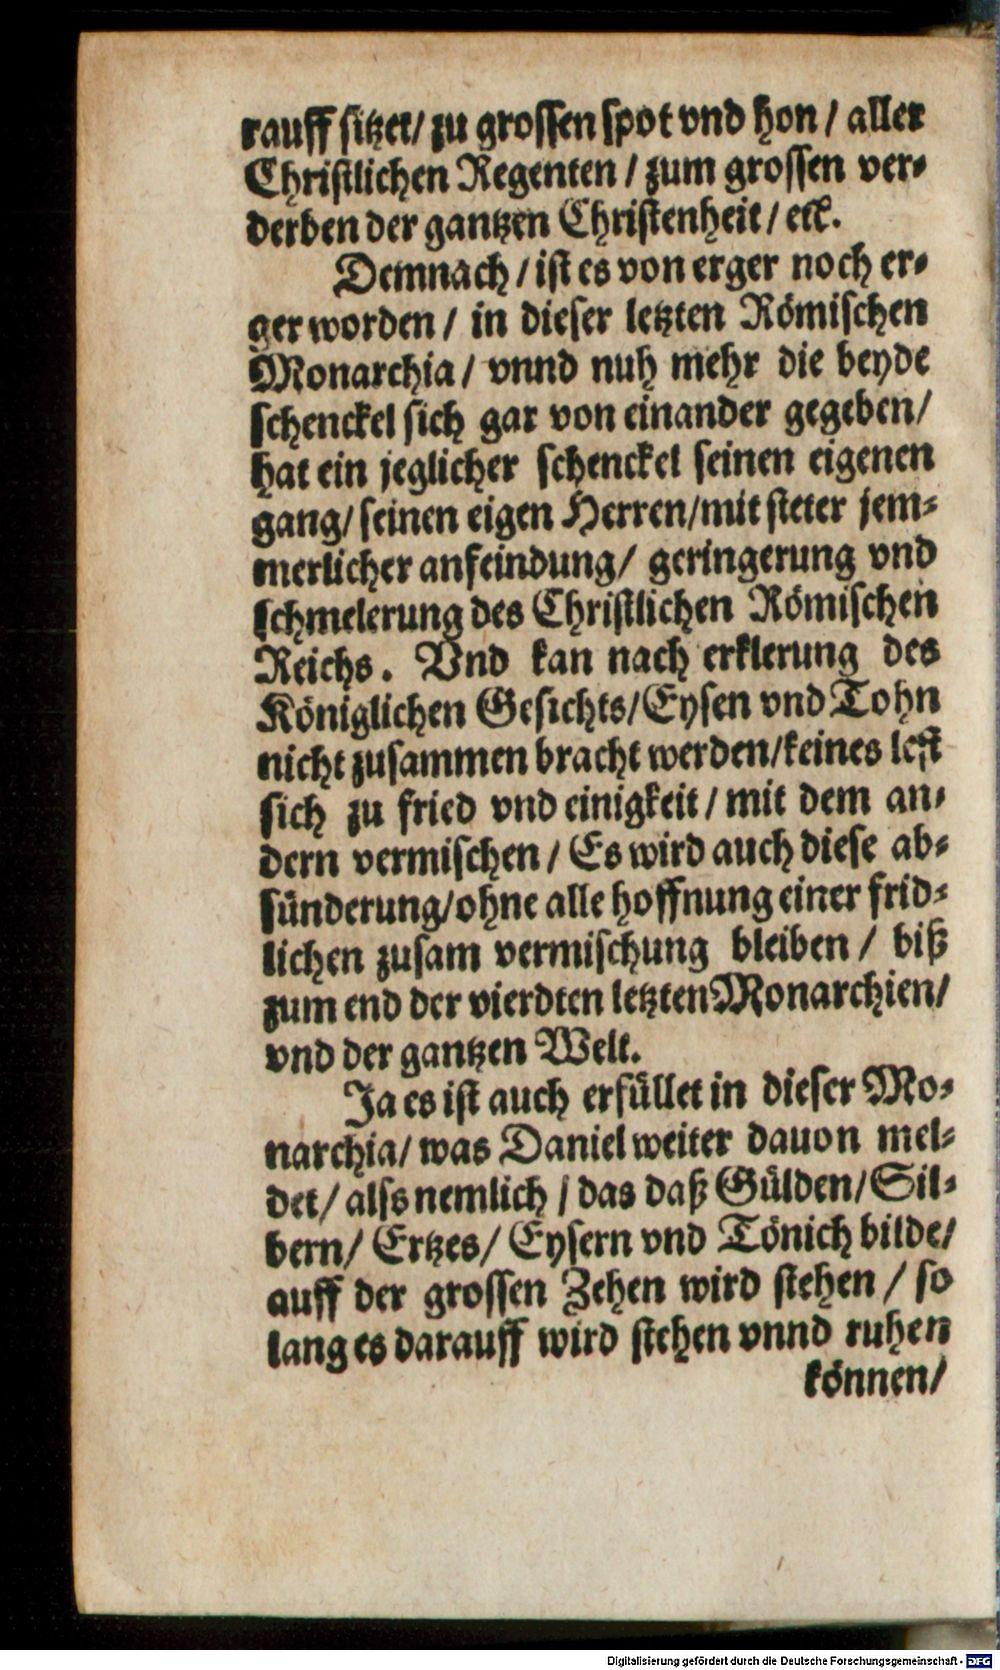 rauff sitzet/ zu grossen spot vnd hon/ aller
Christlichen Regenten/ zum grossen ver-
derben der gantzen Christenheit/ etc.
Demnach/ ist es von erger noch er-
ger worden/ in dieser letzten Römischen
Monarchia/ vnnd nuh mehr die beyde
schenckel sich gar von einander gegeben/
hat ein jeglicher schenckel seinen eigenen
gang/ seinen eigen Herren/ mit steter jem-
merlicher anfeindung/ geringerung vnd
schmelerung des Christlichen Römischen
Reichs. Vnd kan nach erklerung des
Königlichen Gesichts/ Eysen vnd Tohn
nicht zusammen bracht werden/ keines lest
sich zu fried vnd einigkeit/ mit dem an-
dern vermischen/ Es wird auch diese ab-
sünderung/ ohne alle hoffnung einer frid-
lichen zusam vermischung bleiben/ biß
zum end der vierdten letzten Monarchien/
vnd der gantzen Welt.
Ja es ist auch erfüllet in dieser Mo-
narchia/ was Daniel weiter dauon mel-
det/ alss nemlich/ das daß Gülden/ Sil-
bern/ Ertzes/ Eysern vnd Tönich bilde/
auff der grossen Zehen wird stehen/ so
lang es darauff wird stehen vnnd ruhen
können/
Digitalisierung gefördert durch die Deutsche Forschungsgemeinschaft - DFG